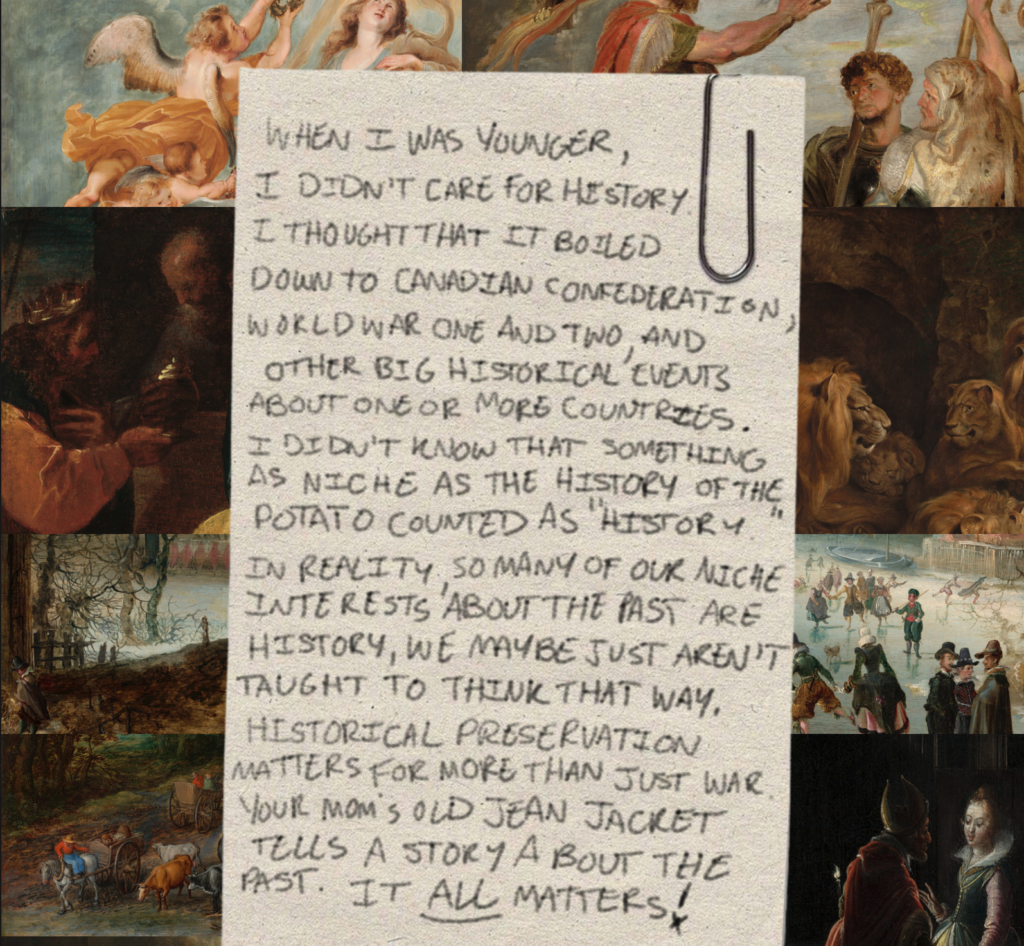 WHEN I WAS YOUNGER,
I DIDN'T CARE FOR HISTORY.
I THOUGHT THAT IT BOILED
DOWN TO CANADIAN CONFEDERATION,
WORLD WAR ONE AND TWO, AND
OTHER BIG HISTORICAL EVENTS
ABOUT ONE OR MORE COUNTRIES.
I DIDN'T KNOW THAT SOMETHING
AS NICHE AS THE HISTORY OF THE
POTATO COUNTED AS "HISTORY."
IN REALITY, SO MANY OF OUR NICHE
INTERESTS ABOUT THE PAST ARE
HISTORY, WE MAYBE JUST AREN'T
TAUGHT TO THINK THAT WAY.
HISTORICAL PRESERVATION
MATTERS FOR MORE THAN JUST WAR.
YOUR MOM'S OLD JEAN JACKET
TELLS A STORY ABOUT THE
PAST. IT ALL MATTERS!